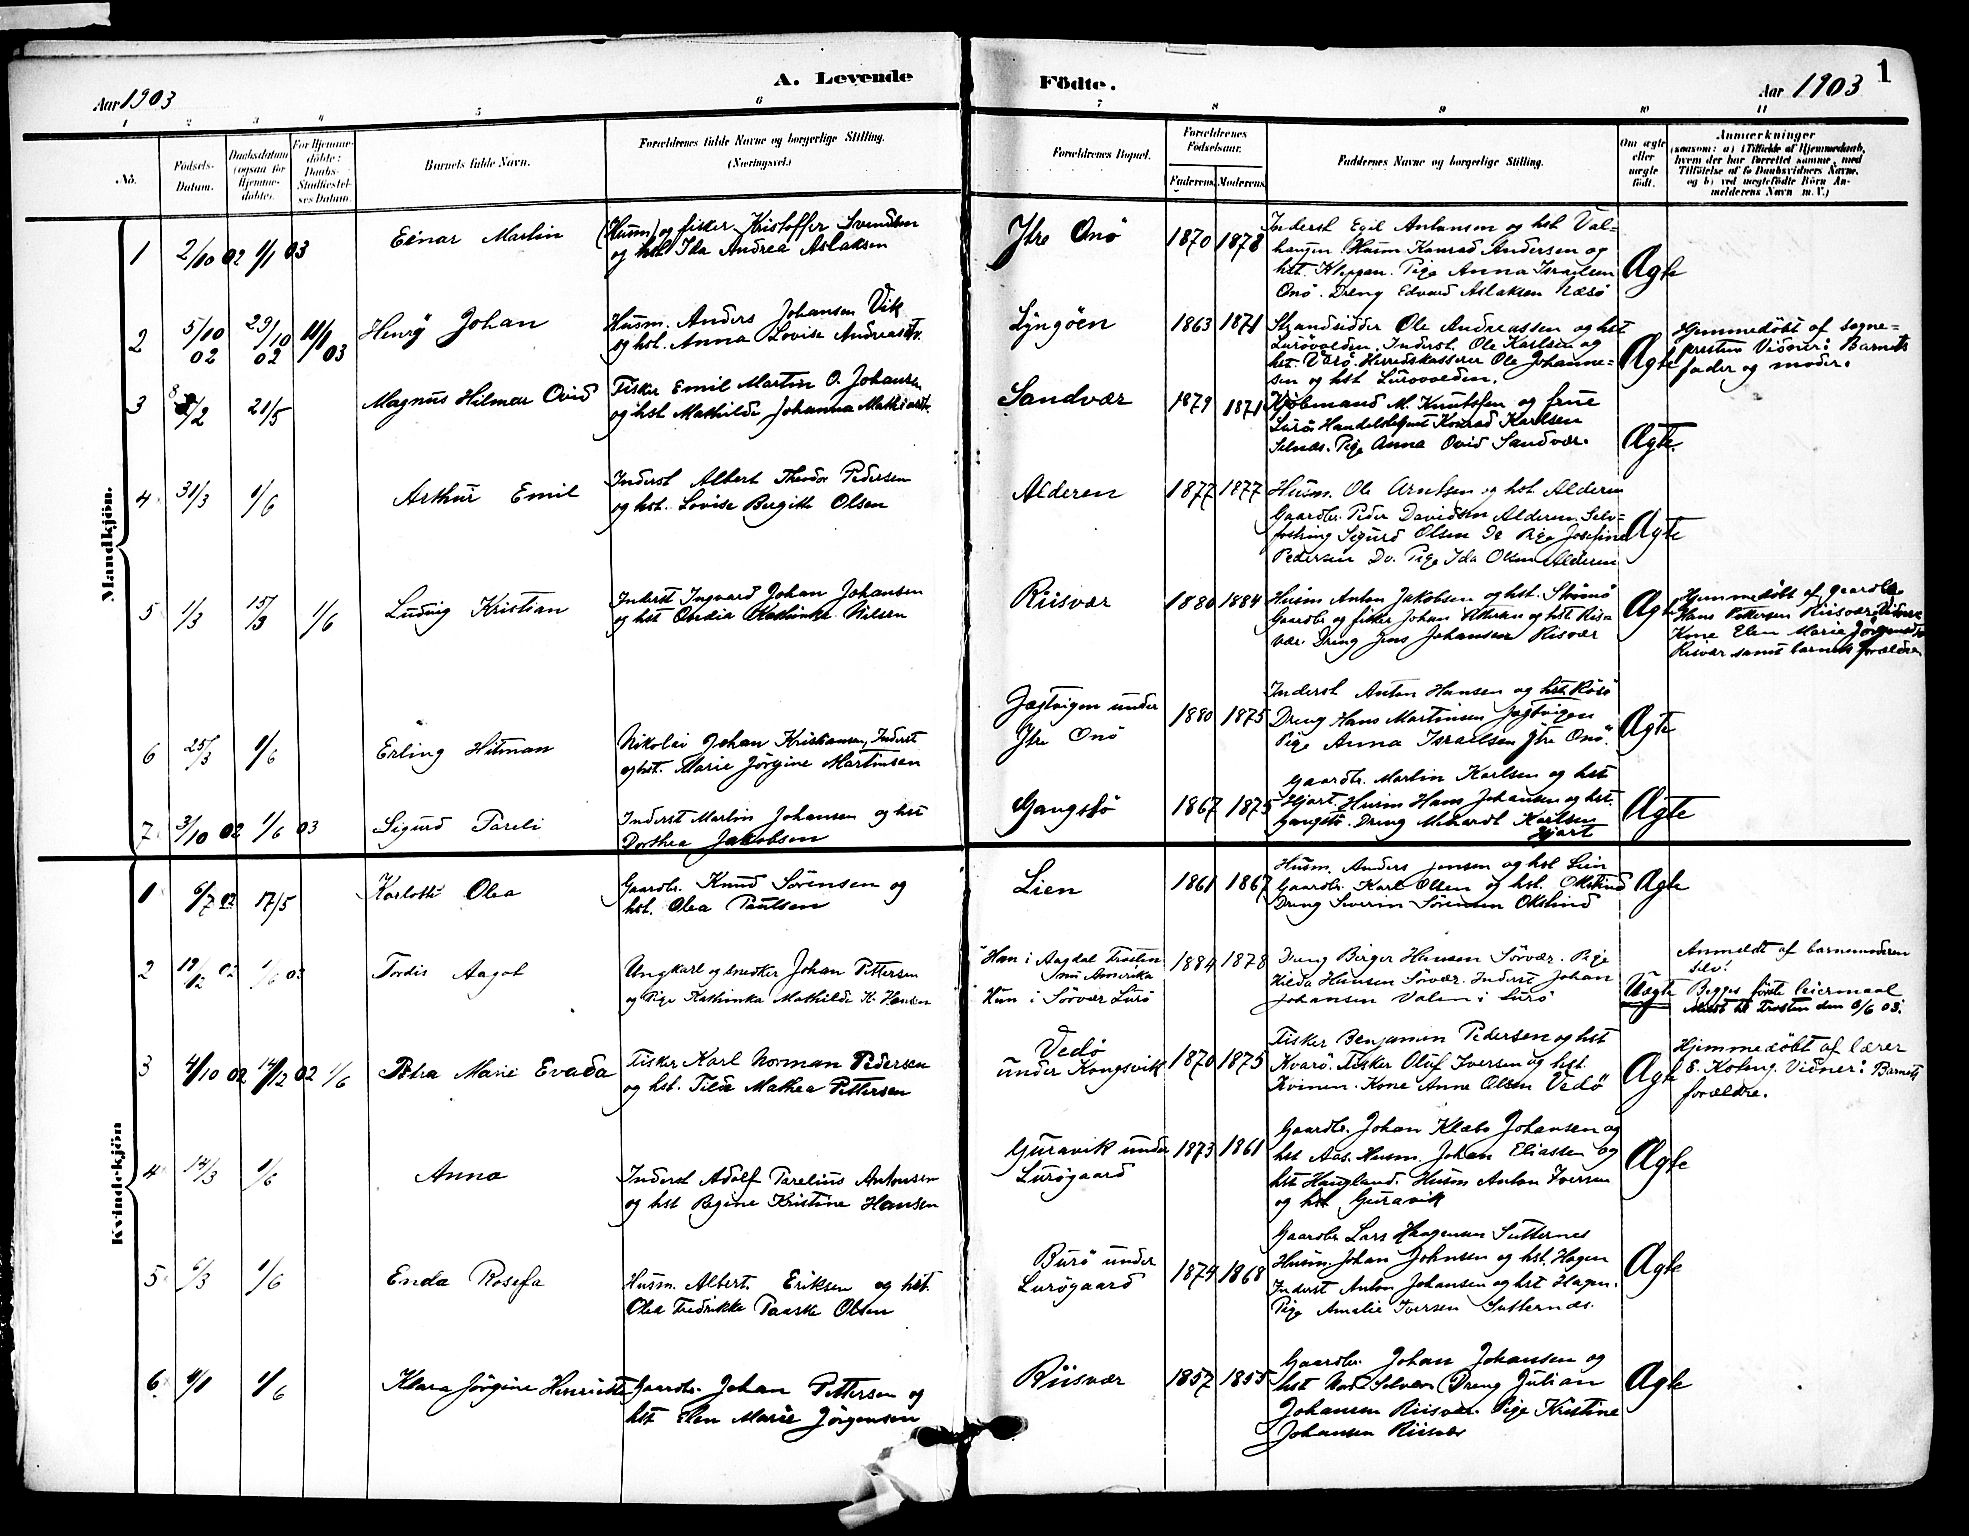 Aar 1903
A. Levende
Födte.
Aar 1903
1
1 2 3 4 5 6 7 8 9 10 11
No.
Födsels-
Datum.
Daabsdatum
(ogsaa for
Hjemme-
döbte).
For Hjemme-
döbte:
Daabs-
Stadfæstel-
ses Datum.
Barnets fulde Navn.
Forældrenes fulde Navne og borgerlige Stilling.
(Næringsvei.)
Forældrenes Bopæl.
Forældrenes
Födselsaar.
Faderens. Moderens.
Faddernes Navne og borgerlige Stilling.
Om ægte
eller
uægte
födt.
Anmærkninger
(saasom: a) i Tilfælde af Hjemmedaab,
hvem der har forrettet samme, med
Tilföielse af to Daabsvidners Navne,
og b) ved uægtefödte Börn An-
melderens Navn m. V.)
Mandkjön.
1 2/10 02 1/1 03
Einar Martin
(Husm) og fisker Kristoffer Svendsen
og hst. Ida Andrea Aslaksen
Ytre Onö
1870 1878
Inderst Egil Antonsen og hst Val-
haugen Husm Konrad Andersen og
hst. Kleppen. Pige Anna Israelsen
Onö. Dreng Edvard Aslaksen Næsö
Ægte
2 5/10 02 29/10 02 11/1 03
Henry Johan
Husm. Anders Johansen Vik
og hst. Anna Lovise Andreasdtr.
Lyngöen
1863 1871
Strandsidder Ole Andreassen og hst
Lurövolden. Inderst. Ole Karlsen og
hst. Varö. Herredskasserer Ole Johanne-
sen og hst Lurövolden.
Ægte
Hjemmedöbt af sogne-
presten Vidner: Barnets
fader og moder.
3 8/2 21/5
Magnus Hilmar Ovid
Fisker Emil Martin O. Johansen
og hst Mathilde Johanna Mathiasdt.
Sandvær
1879 1871
Kjöbmand M. Knutsen og frue
Lurö. Handelsbetjent Konrad Karlsen
Selnæs. Pige Anna Ovid Sandvær.
Ægte.
4 31/3 1/6
Arthur Emil
Inderst Albert Theodor Pedersen
og hst. Lovise Bergitte Olsen
Alderen
1877 1877
Husm. Ole Arntsen og hst. Alderen
Gaardbr. Peder Davidsen Alderen. Selv-
fostring Sigurd Olsen Do Pige Josefine
Pedersen Do. Pige Ida Olsen Alderen
Ægte
5 1/3 15/3 1/6
Ludvig Kristian
Inderst Ingvard Johan Johansen
og hst Obedia Kathinka Nilsen
Riisvær
1880 1884
Husm Anton Jakobsen og hst. Strömö
Gaardbr og fisker Johan Petersen og hst Riis
vær. Dreng Jens Johansen Risvær
Ægte
Hjemmedöbt af gaardbr
Hans Pettersen Riisvær Vidner
Kone Elen Marie Jörgensdtr
Risvær samt barnets forældre
6 25/3 1/6
Erling Hitman
Nikolai Johan Kristiansen, Inderst
og hst. Marie Jörgine Martinsen
Jægtvigen under
Ytre Onö
1880 1875
Inderst Anton Hansen og hst Rösö
Dreng Hans Martinsen Jægtvigen
Pige Anna Israelsen Ytre Onö.
Ægte
7 3/10 02 1/6 03
Sigurd Pareli
Inderst Martin Johansen og hst
Dorthea Jakobsen
Gangstö
1867 1875
Gaardbr. Martin Karlsen og hst
Hjart. Husm Hans Johansen og hst.
Gangstö. Dreng Meihardt Karlsen
Hjart
Ægte
Kvindekjön
1 6/7 02 17/5
Karlotte Olea
Gaardbr. Knud Sörensen og
hst. Olea Paulsen
Lien
1861 1867
Husm. Anders Jensen og hst Lien
Gaardbr. Karl Olsen og hst. Okstind
Dreng Severin Sörensen Okstind
Ægte
2 19/12 02 1/6 03
Tordis Aagot
Ungkarl og snedker Johan Pettersen
og Pige Kathinka Mathilde K. Hansen
Han i Aagdal Trosten
som Amerika
Hun i Sörvær Lurö
1884 1878
Dreng Birger Hansen Sörvær. Pige
Hilda Hansen Sörvær. Inderst Johan
Johansen Valen i Lurö
Uægte
Anmeldt af barnemoderen
selv.
Begges förste leiermaal
Meldt til Trosten den 8/6 03.
3 4/10 02 14/12 02 1/6
Petra Marie Evada
Fisker Karl Norman Pedersen
og hst. Tilde Mathea Pettersen
Vedö
under Kongsvik
1870 1875
Fisker Benjamin Pedersen og hst
Kvarö. Fisker Oluf Iversen og hst.
Kvinen. Kone Anne Olsen Vedö
Ægte
Hjemmedöbt af lærer
E. Koteng. Vidner: Barnets
forældre.
4 14/3 1/6
Anna
Inderst Adolf Parelius Antonsen
og hst Regine Kristine Hansen
Guravik under
Lurögaard
1873 1861
Gaardbr. Johan Klæbo Johansen og
hst Aas. Husm. Johan Eliassen og
hst Haugland. Husm Anton Iversen
og hst Guravik
Ægte
5 6/3 1/6
Enda Rosefa
Husm. Albert Eriksen og hst.
Olea Fredrikke Paaske Olsen
Burö under
Lurögaard
1874 1868
Gaardbr Lars Haagensen Sutternes
Husm Johan Johnsen og hst. Hagen
Inderst Anton Johansen og hst Hagen.
Pige Amalie Iversen Sutternæs.
Ægte
6 4/1 1/6
Klara Jörgine Henriette
Gaardbr. Johan Pettersen og
hst Elen Marie Jörgensen
Riisvær
1857 1855
Gaardbr. Johan Johansen og
hst Nord Selvær. Dreng Julian
Johansen Riisvær. Pige Kristine
Johansen Riisvær
Ægte